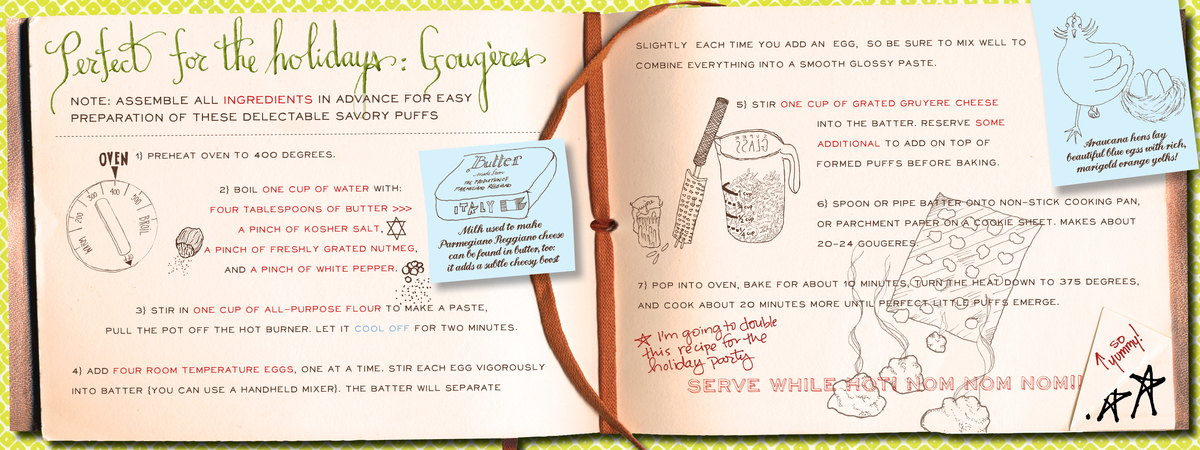 Perfect for the holidays: Gougères
NOTE: ASSEMBLE ALL INGREDIENTS IN ADVANCE FOR EASY
PREPARATION OF THESE DELECTABLE SAVORY PUFFS
OVEN
WARM
200
300
400
500
BROIL
1) PREHEAT OVEN TO 400 DEGREES.
2) BOIL ONE CUP OF WATER WITH:
FOUR TABLESPOONS OF BUTTER >>>
A PINCH OF KOSHER SALT,
A PINCH OF FRESHLY GRATED NUTMEG,
AND A PINCH OF WHITE PEPPER.
Butter
...made from
THE PRODUCTION OF
PARMIGIANO REGGIANO
ITALY
Milk used to make
Parmegiano Reggiano cheese
can be found in butter, too:
it adds a subtle cheesy boost
3) STIR IN ONE CUP OF ALL-PURPOSE FLOUR TO MAKE A PASTE,
PULL THE POT OFF THE HOT BURNER. LET IT COOL OFF FOR TWO MINUTES.
4) ADD FOUR ROOM TEMPERATURE EGGS, ONE AT A TIME. STIR EACH EGG VIGOROUSLY
INTO BATTER (YOU CAN USE A HANDHELD MIXER). THE BATTER WILL SEPARATE
SLIGHTLY EACH TIME YOU ADD AN EGG, SO BE SURE TO MIX WELL TO
COMBINE EVERYTHING INTO A SMOOTH GLOSSY PASTE.
5) STIR ONE CUP OF GRATED GRUYERE CHEESE
INTO THE BATTER. RESERVE SOME
ADDITIONAL TO ADD ON TOP OF
FORMED PUFFS BEFORE BAKING.
SUPER
GLASS
Araucana hens lay
beautiful blue egss with rich,
marigold orange yelks!
6) SPOON OR PIPE BATTER ONTO NON-STICK COOKING PAN,
OR PARCHMENT PAPER ON A COOKIE SHEET. MAKES ABOUT
20-24 GOUGERES.
7) POP INTO OVEN, BAKE FOR ABOUT 10 MINUTES, TURN THE HEAT DOWN TO 375 DEGREES,
AND COOK ABOUT 20 MINUTES MORE UNTIL PERFECT LITTLE PUFFS EMERGE.
I'm going to double
this recipe for the
holiday party
SERVE WHILE HOT! NOM NOM NOM!!
SO
yummy!